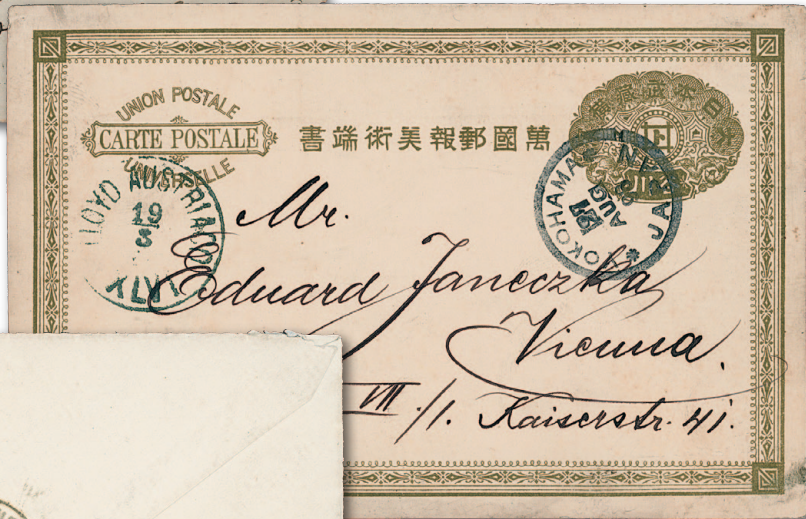 UNION POSTALE
CARTE POSTALE
UNIVERSELLE
書端術美報郵國萬
LLOYD AUSTRIACO
19
8
XLVI
YOKOHAMA
JAPAN
27
AUG
Mr.
Eduard Janeczka
Vienna.
VII./1. Kaiserstr. 41.